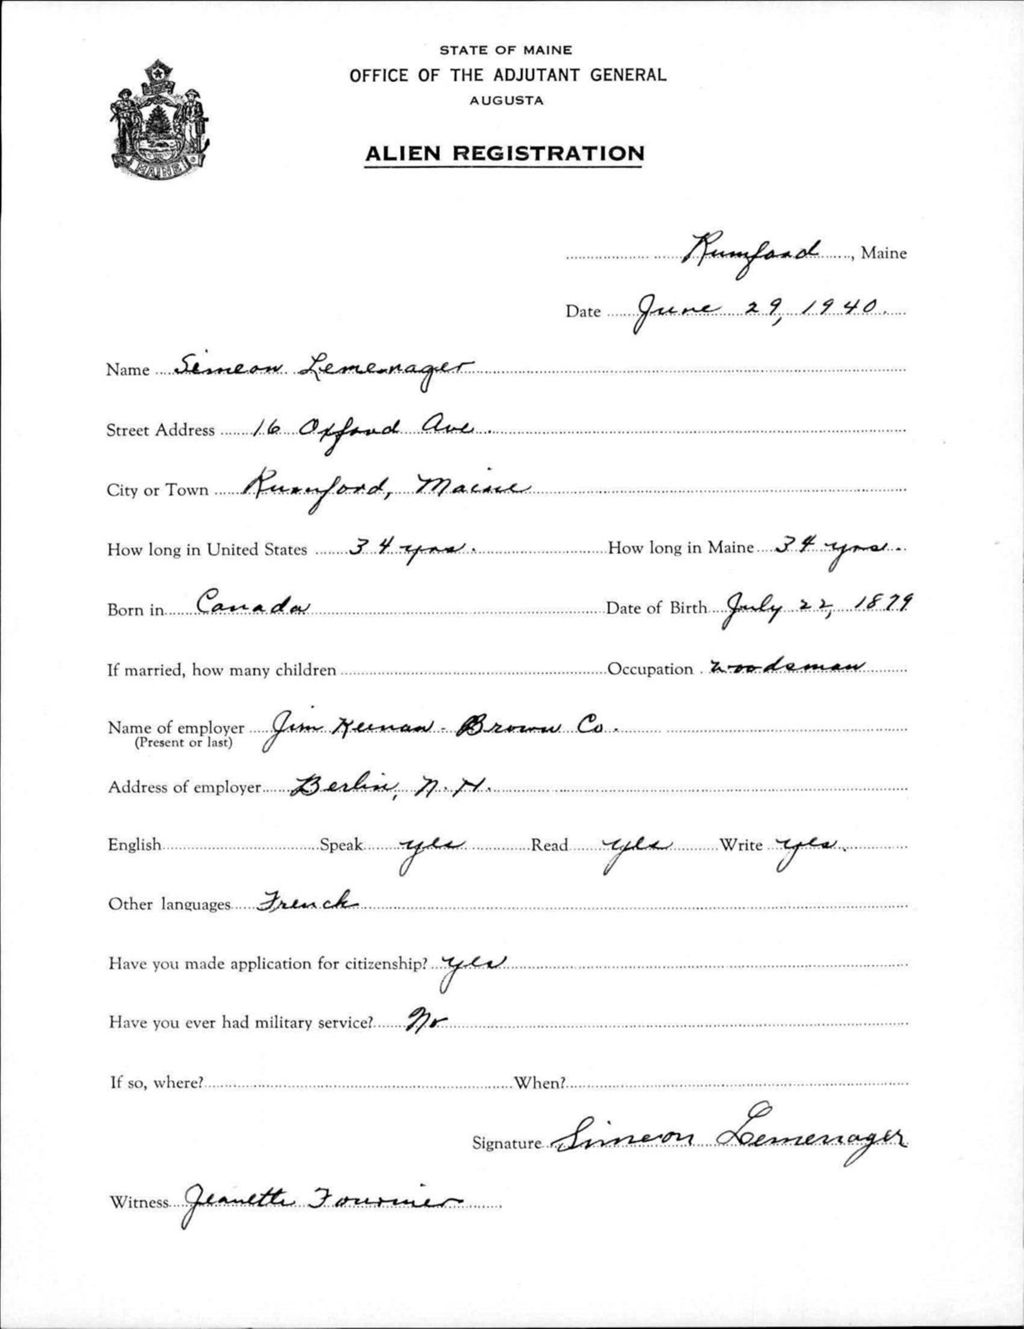 STATE OF MAINE
OFFICE OF THE ADJUTANT GENERAL
AUGUSTA
ALIEN REGISTRATION
MAINE
Rumford, Maine
Date June 29, 1940.
Name Simeon Lemenager
Street Address 16 Oxford Ave.
City or Town Rumford, Maine
How long in United States 34 yrs. How long in Maine 34 yrs.
Born in Canada Date of Birth July 22, 1879
If married, how many children Occupation woodsman
Name of employer Jim Keenan - Brown Co.
(Present or last)
Address of employer Berlin, N.H.
English Speak yes Read yes Write yes.
Other languages French
Have you made application for citizenship? yes
Have you ever had military service? No
If so, where? When?
Signature Simeon Lemenager
Witness Jeanette Fournier